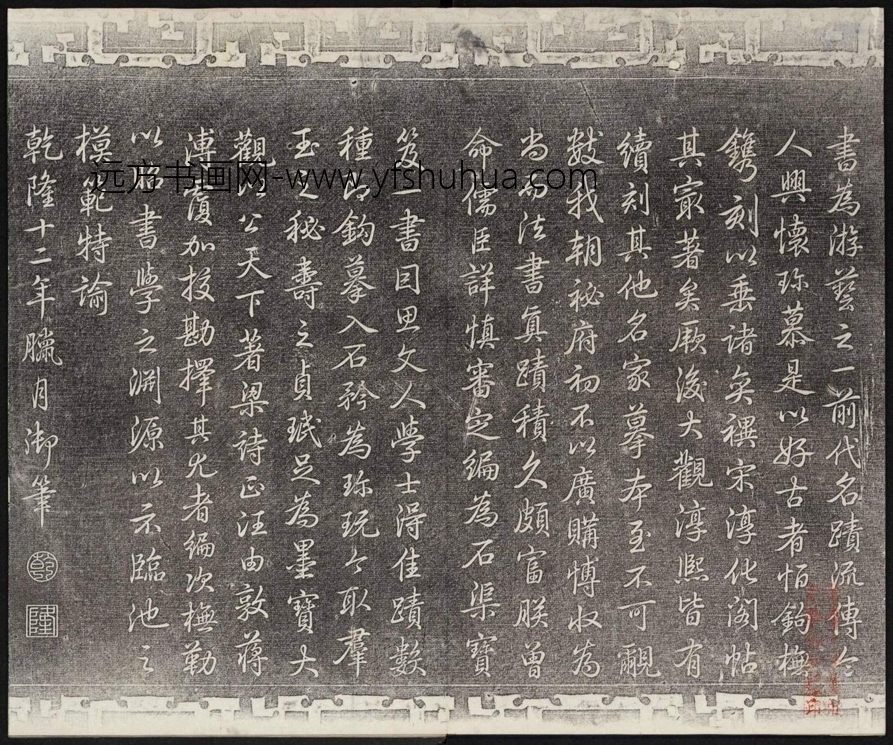 書為游藝之一前代名蹟流傳令
人興懷珎慕是以好古者恆鉤橅
鐫刻以垂諸奕禩宋淳化閣帖
其㝡著矣厥後大觀淳熙皆有
續刻其他名家摹本至不可覼
數我朝祕府初不以廣購博收為
尚而法書真蹟積久頗富朕曾
命儒臣詳慎審定編為石渠寶
笈一書因思文人學士得佳蹟數
種即鉤摹入石矜為珎玩今取羣
玉之秘壽之貞珉足為墨寶大
觀以公天下著梁詩正汪由敦蔣
溥覆加挍勘擇其尤者編次橅勒
以昭書學之淵源以示臨池之
模範特諭
乾隆十二年臘月御筆
乾
隆
远方书画网-www.yfshuhua.com